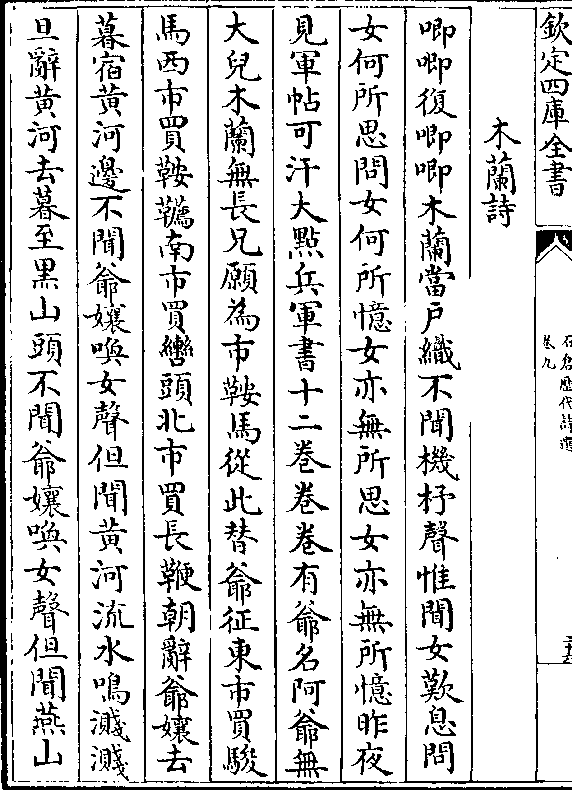 欽定四庫全書
石倉歷代詩選
卷九
木蘭詩
唧唧復唧唧木蘭當户織不聞機杼聲惟聞女歎息問
女何所思問女何所憶女亦無所思女亦無所憶昨夜
見軍帖可汗大點兵軍書十二巻巻巻有爺名阿爺無
大兒木蘭無長兄願為市鞍馬從此替爺征東市買駿
馬西市買鞍韉南市買轡頭北市買長鞭朝辭爺孃去
暮宿黄河邊不聞爺孃喚女聲但聞黄河流水鳴濺濺
旦辭黄河去暮至黒山頭不聞爺孃喚女聲但聞燕山